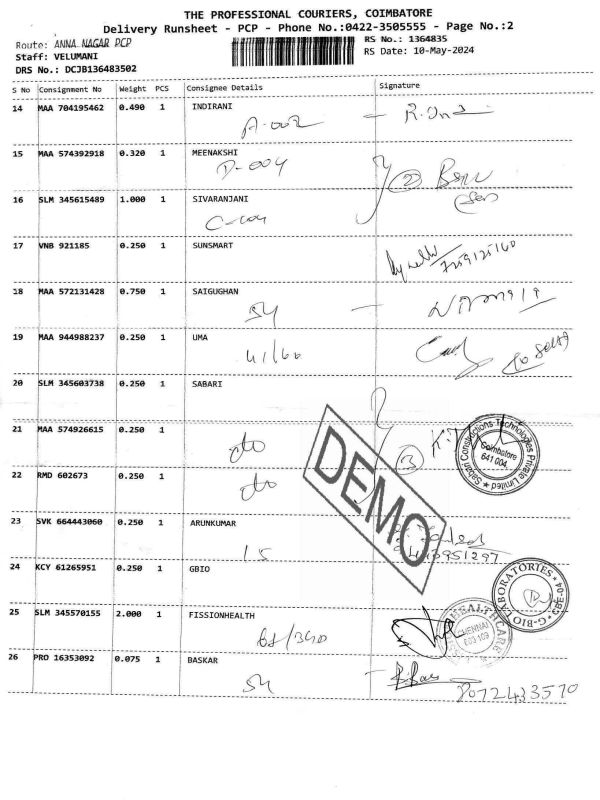 THE PROFESSIONAL COURIERS, COIMBATORE
Delivery Runsheet - PCP - Phone No.:0422-3505555 - Page No.:2
Route: ANNA NAGAR PCP
RS No.: 1364835
Staff: VELUMANI
RS Date: 10-May-2024
DRS No.: DCJB136483502
S No Consignment No Weight PCS Consignee Details Signature
14 MAA 704195462 0.490 1 INDIRANI
A-002
15 MAA 574392918 0.320 1 MEENAKSHI
D-004
16 SLM 345615489 1.000 1 SIVARANJANI
17 VNB 921185 0.250 1 SUNSMART
7259125160
18 MAA 572131428 0.750 1 SAIGUGHAN
54
19 MAA 944988237 0.250 1 UMA
41/60
20 SLM 345603738 0.250 1 SABARI
21 MAA 574926615 0.250 1
Saban Constructions Technologies Private Limited
Coimbatore
641 004
22 RMD 602673 0.250 1
DEMO
23 SVK 664443060 0.250 1 ARUNKUMAR
15
24 KCY 61265951 0.250 1 GBIO
G-BIO LABORATORIES CBE-04
25 SLM 345570155 2.000 1 FISSIONHEALTH
HEALTHCARE
CHENNAI
26 PRO 16353092 0.075 1 BASKAR
54
8072433570